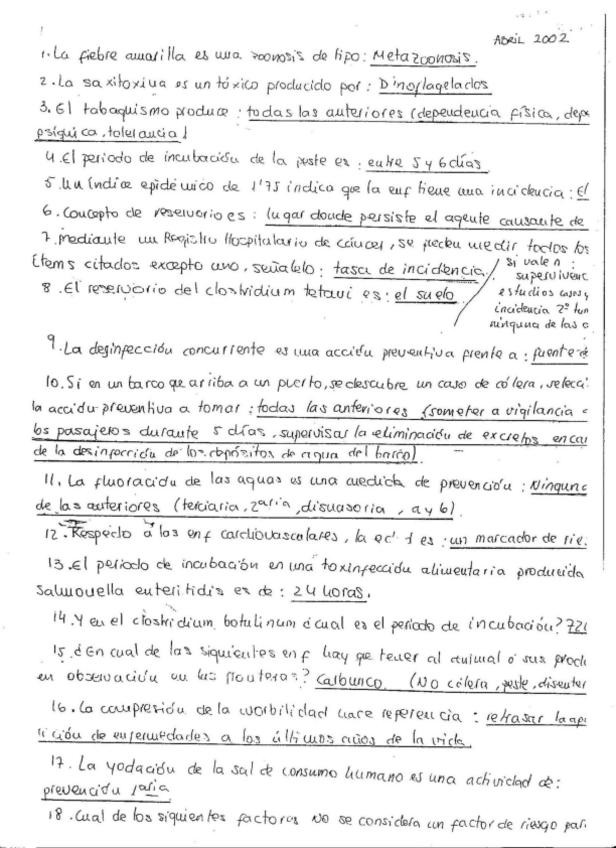 ABRIL 2002
1. La fiebre amarilla es una zoonosis de tipo: Metazoonosis.
2. La saxitoxina es un tóxico producido por: Dinoflagelados
3. El tabaquismo produce: todas las anteriores (dependencia física, depe
psíquica, tolerancia)
4. El periodo de incubación de la peste es: entre 5 y 6 días
5. Un índice epidémico de 1'75 indica que la enf tiene una incidencia: El
6. Concepto de reservorio es: lugar donde persiste el agente causante de
7. Mediante un Registro Hospitalario de cáncer, se pueden medir todos los
Items citados excepto uno, señalelo: tasa de incidencia.
si valen:
supervivenc
estudios casos y
incidencia 2º tum
ninguna de las a
8. El reservorio del clostridium tetani es: el suelo
9. La desinfección concurrente es una acción preventiva frente a: fuente de
10. Si en un barco que arriba a un puerto, se descubre un caso de cólera, selecci
la acción preventiva a tomar: todas las anteriores (someter a vigilancia a
los pasajeros durante 5 días, supervisar la eliminación de excretos, encar
de la desinfección de los depósitos de agua del barco).
11. La fluoración de las aguas es una medida de prevención: Ninguna
de las anteriores (terciaria, 2aria, disuasoria, a y b).
12. Respecto a las enf cardiovasculares, la es: un marcador de rie
13. El periodo de incubación en una toxinfección alimentaria producida
Salmonella enteritidis es de: 24 horas.
14. Y en el clostridium botulinum ¿cual es el periodo de incubación? 72
15. ¿En cual de las siguientes enf hay que tener al animal o sus produ
en observación en las fronteras? Carbunco. (No cólera, peste, disenter
16. La compresión de la morbilidad hace referencia: retrasar la apa
rición de enfermedades a los últimos años de la vida.
17. La yodación de la sal de consumo humano es una actividad de:
prevención 1aria
18. Cual de los siguientes factores NO se considera un factor de riesgo par